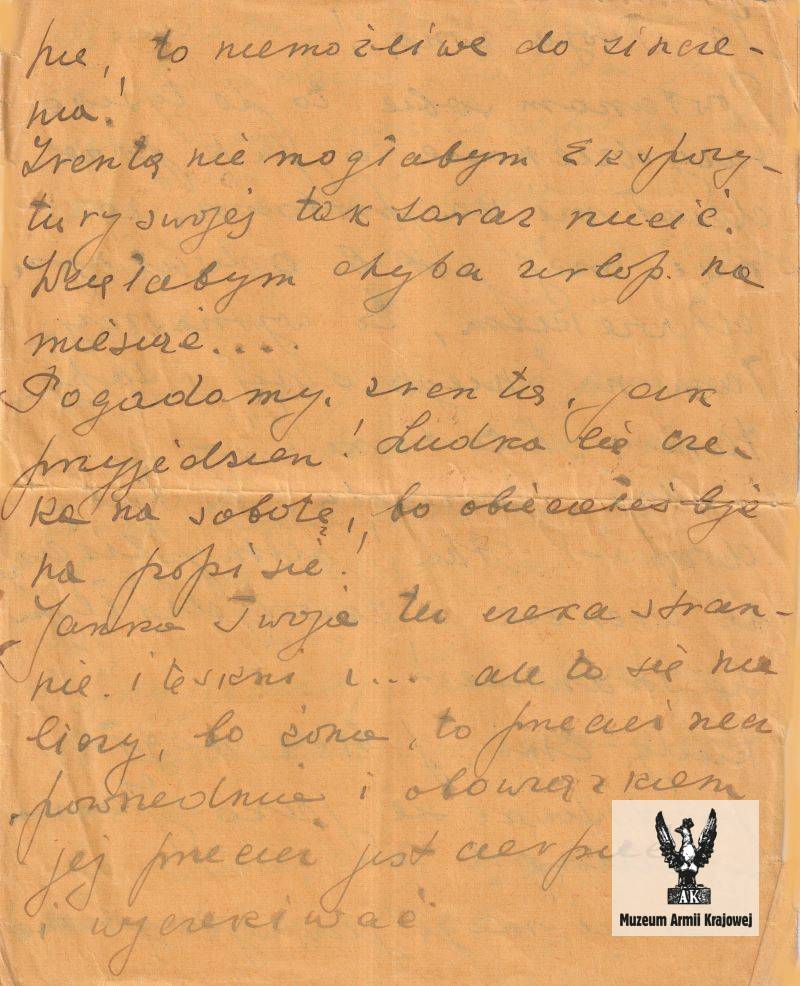 nie, to niemożliwe do zincze-
nia!
Zrentą nie mogłabym Ekspozy-
tury swojej tak zaraz rzucić.
Wzięłabym chyba urlop. na
miesiąc....
Pogadamy, zrentą, jak
przyjedzien! Ludka Cię cze-
ka na sobotę, bo obiecałeś być
na popisie!
Janka Twoja tu czeka stran-
nie. i tęskni i... ale to się nie
liczy, bo żona, to przecież rzecz
powszednia i obowiązkiem
jej przecież jest cierpieć
i wyczekiwać
AK
Muzeum Armii Krajowej